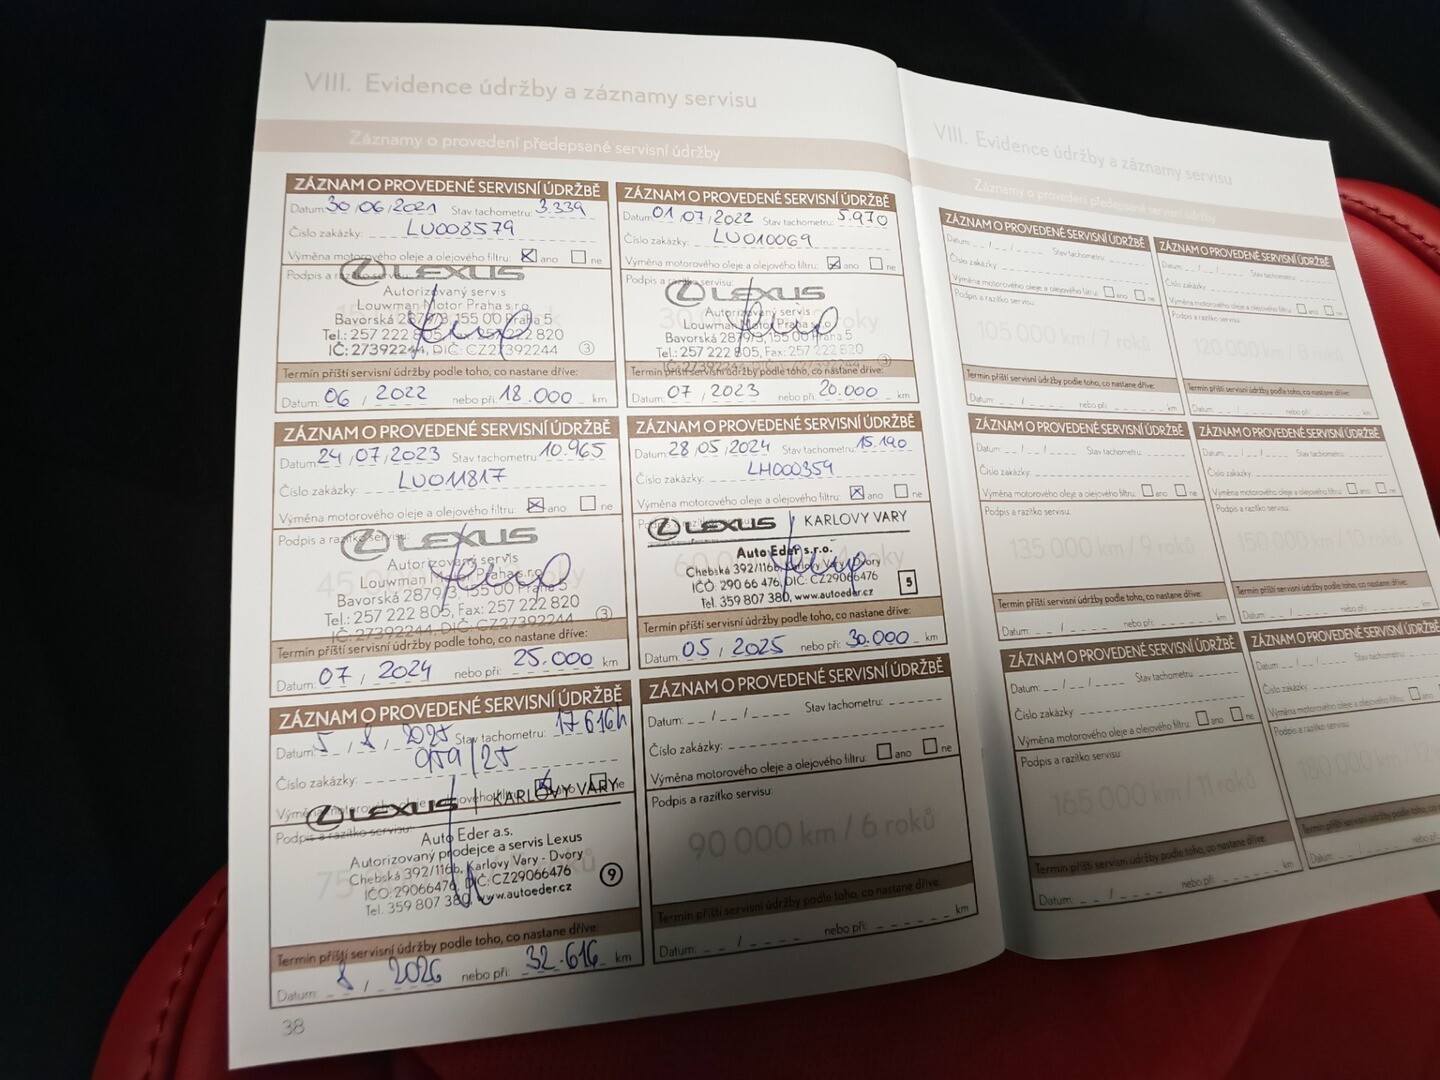 VIII. Evidence údržby a záznamy servisu
Záznamy o provedení předepsané servisní údržby
ZÁZNAM O PROVEDENÉ SERVISNÍ ÚDRŽBĚ
Datum: 30/06/2021 Stav tachometru: 3.339
Číslo zakázky: LU008579
Výměna motorového oleje a olejového filtru: ☒ ano ☐ ne
Podpis a razítko servisu:
LEXUS
Autorizovaný servis
Louwman Motor Praha s.r.o.
Bavorská 2879/3, 155 00 Praha 5
Tel.: 257 222 805, Fax: 257 222 820
IČ: 27392244, DIČ: CZ27392244 ③
Termín příští servisní údržby podle toho, co nastane dříve:
Datum: 06 / 2022 nebo při: 18.000 km
ZÁZNAM O PROVEDENÉ SERVISNÍ ÚDRŽBĚ
Datum: 01/07/2022 Stav tachometru: 5.970
Číslo zakázky: LU010069
Výměna motorového oleje a olejového filtru: ☒ ano ☐ ne
Podpis a razítko servisu:
LEXUS
Autorizovaný servis
Louwman Motor Praha s.r.o.
Bavorská 2879/3, 155 00 Praha 5
Tel.: 257 222 805, Fax: 257 222 820
IČ: 27392244, DIČ: CZ27392244 ③
Termín příští servisní údržby podle toho, co nastane dříve:
Datum: 07 / 2023 nebo při: 20.000 km
ZÁZNAM O PROVEDENÉ SERVISNÍ ÚDRŽBĚ
Datum: 24/07/2023 Stav tachometru: 10.965
Číslo zakázky: LU011817
Výměna motorového oleje a olejového filtru: ☒ ano ☐ ne
Podpis a razítko servisu:
LEXUS
Autorizovaný servis
Louwman Motor Praha s.r.o.
Bavorská 2879/3, 155 00 Praha 5
Tel.: 257 222 805, Fax: 257 222 820
IČ: 27392244, DIČ: CZ27392244 ③
Termín příští servisní údržby podle toho, co nastane dříve:
Datum: 07 / 2024 nebo při: 25.000 km
ZÁZNAM O PROVEDENÉ SERVISNÍ ÚDRŽBĚ
Datum: 28/05/2024 Stav tachometru: 15.190
Číslo zakázky: LH000359
Výměna motorového oleje a olejového filtru: ☒ ano ☐ ne
LEXUS | KARLOVY VARY
Auto Eder s.r.o.
Chebská 392/116b, Karlovy Vary - Dvory
IČO: 290 66 476, DIČ: CZ29066476
Tel. 359 807 380, www.autoeder.cz 5
Termín příští servisní údržby podle toho, co nastane dříve:
Datum: 05 / 2025 nebo při: 30.000 km
ZÁZNAM O PROVEDENÉ SERVISNÍ ÚDRŽBĚ
Datum: 5 / 8 / 2025 Stav tachometru: 17616
Číslo zakázky: 959/25
Výměna motorového oleje a olejového filtru: ☒ ano ☐ ne
Podpis a razítko servisu:
LEXUS | KARLOVY VARY
Auto Eder a.s.
Autorizovaný prodejce a servis Lexus
Chebská 392/116b, Karlovy Vary - Dvory
IČO: 29066476, DIČ: CZ29066476
Tel. 359 807 380, www.autoeder.cz ⑨
Termín příští servisní údržby podle toho, co nastane dříve:
Datum: 8 / 2026 nebo při: 32.616 km
ZÁZNAM O PROVEDENÉ SERVISNÍ ÚDRŽBĚ
Datum: Stav tachometru:
Číslo zakázky:
Výměna motorového oleje a olejového filtru: ☐ ano ☐ ne
Podpis a razítko servisu:
90 000 km / 6 roků
Termín příští servisní údržby podle toho, co nastane dříve:
Datum: nebo při: km
38
VIII. Evidence údržby a záznamy servisu
Záznamy o provedení předepsané servisní údržby
ZÁZNAM O PROVEDENÉ SERVISNÍ ÚDRŽBĚ
Datum: Stav tachometru:
Číslo zakázky:
Výměna motorového oleje a olejového filtru: ☐ ano ☐ ne
Podpis a razítko servisu:
105 000 km / 7 roků
Termín příští servisní údržby podle toho, co nastane dříve:
Datum: nebo při: km
ZÁZNAM O PROVEDENÉ SERVISNÍ ÚDRŽBĚ
Datum: Stav tachometru:
Číslo zakázky:
Výměna motorového oleje a olejového filtru: ☐ ano ☐ ne
Podpis a razítko servisu:
120 000 km / 8 roků
Termín příští servisní údržby podle toho, co nastane dříve:
Datum: nebo při: km
ZÁZNAM O PROVEDENÉ SERVISNÍ ÚDRŽBĚ
Datum: Stav tachometru:
Číslo zakázky:
Výměna motorového oleje a olejového filtru: ☐ ano ☐ ne
Podpis a razítko servisu:
135 000 km / 9 roků
Termín příští servisní údržby podle toho, co nastane dříve:
Datum: nebo při: km
ZÁZNAM O PROVEDENÉ SERVISNÍ ÚDRŽBĚ
Datum: Stav tachometru:
Číslo zakázky:
Výměna motorového oleje a olejového filtru: ☐ ano ☐ ne
Podpis a razítko servisu:
150 000 km / 10 roků
Termín příští servisní údržby podle toho, co nastane dříve:
Datum: nebo při: km
ZÁZNAM O PROVEDENÉ SERVISNÍ ÚDRŽBĚ
Datum: Stav tachometru:
Číslo zakázky:
Výměna motorového oleje a olejového filtru: ☐ ano ☐ ne
Podpis a razítko servisu:
165 000 km / 11 roků
Termín příští servisní údržby podle toho, co nastane dříve:
Datum: nebo při: km
ZÁZNAM O PROVEDENÉ SERVISNÍ ÚDRŽBĚ
Datum: Stav tachometru
Číslo zakázky:
Výměna motorového oleje a olejového filtru: ☐
Podpis a razítko servisu:
180 000 km /
Termín příští servisní údržby podle toho, co nastane
Datum: nebo při: